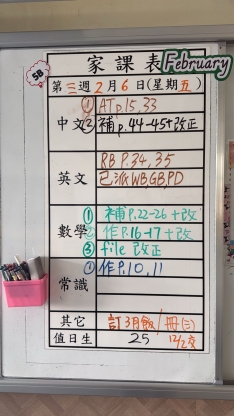 5B
家課表
February
第三週2月6日(星期五)
中文
① AT p.15.33
② 補p.44-45+改正
英文
RB P.34,35
已派WB,GB,PD
數學
① 補P.22-26+改
② 作P.16-17+改
③ file 改正
常識
① 作P.10,11
其它
訂3月飯/冊(三)
12/2交
值日生
25